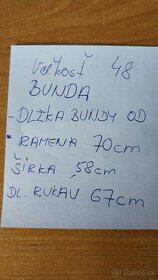 Veľkosť 48
BUNDA
- DLŽKA BUNDY OD
RAMENA 70cm
ŠÍRKA 58cm
DL. RUKAV 67cm